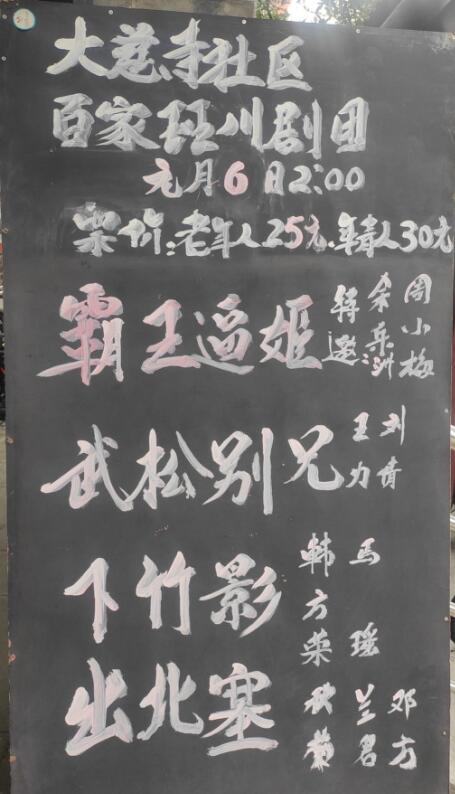 大慈寺社区
百家班川剧团
元月6日2:00
票价:老年人25元.年青人30元
霸王逼姬 特邀:余乐洲 周小梅
武松别兄 王力 刘青
下竹影 韩方荣 马瑶
出北塞 秋菊 兰君 邓方